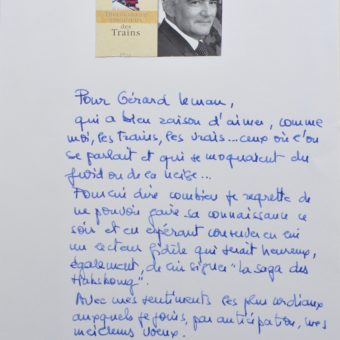 Dictionnaire amoureux
des
Trains
Plon
Pour Gérard Leman,
qui a bien raison d'aimer, comme
moi, les trains, les vrais... ceux où l'on
se parlait et qui se moquaient du
froid ou de la neige...
Pour lui dire combien je regrette de
ne pouvoir faire sa connaissance ce
soir et en espérant conserver en lui
un lecteur fidèle qui serait heureux,
également, de lui signer "la saga des
Avec mes sentiments les plus cordiaux
auxquels je joins, par anticipation, mes
meilleurs voeux.